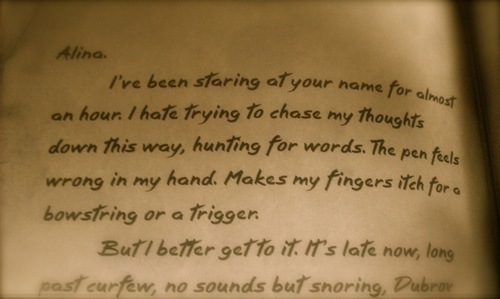 Alina.
I've been staring at your name for almost
an hour. I hate trying to chase my thoughts
down this way, hunting for words. The pen feels
wrong in my hand. Makes my fingers itch for a
bowstring or a trigger.
But I better get to it. It's late now, long
past curfew, no sounds but snoring, Dubrov